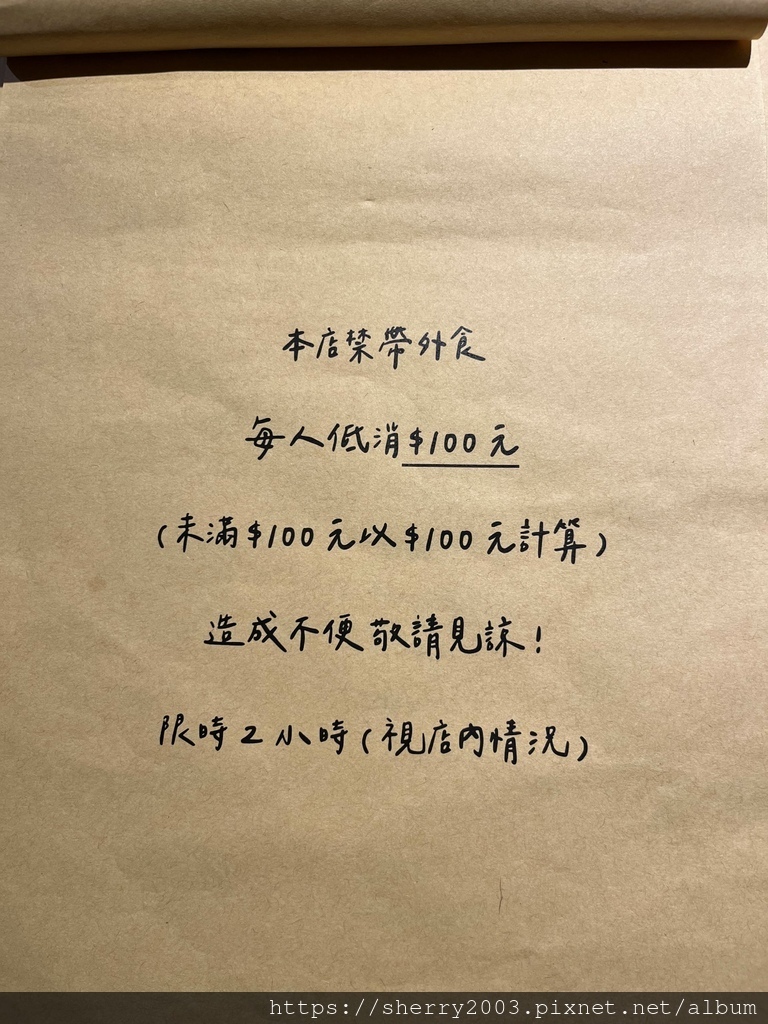 本店禁帶外食
每人低消$100元
(未滿$100元以$100元計算)
造成不便敬請見諒!
限時2小時(視店內情況)
https://sherry2003.pixnet.net/album